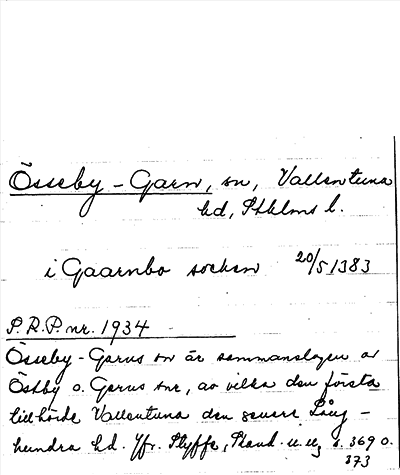 Össeby-Garn, sn, Vallentuna
hd, Sthlms l.
i Gaarnbo socken 20/5 1383
P.R.P. nr. 1934
Össeby-Garns sn är sammanslagen av
Östby o. Garns snr, av vilka den första
tillhörde Vallentuna den senare Lång-
hundra hd. Jfr. Styffe, Skand. u. u., s. 369 o.
373